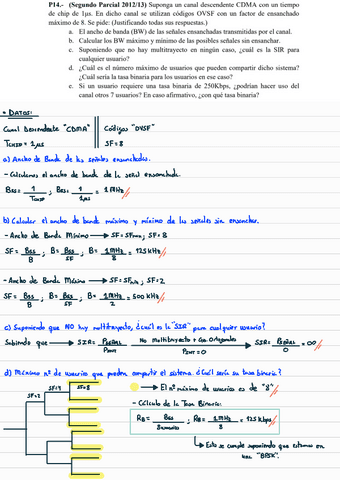 P14.- (Segundo Parcial 2012/13) Suponga un canal descendente CDMA con un tiempo
de chip de 1µs. En dicho canal se utilizan códigos OVSF con un factor de ensanchado
máximo de 8. Se pide: (Justificando todas sus respuestas.)
a. El ancho de banda (BW) de las señales ensanchadas transmitidas por el canal.
b. Calcular los BW máximo y mínimo de las posibles señales sin ensanchar.
c. Suponiendo que no hay multitrayecto en ningún caso, ¿cuál es la SIR para
cualquier usuario?
d. ¿Cuál es el número máximo de usuarios que pueden compartir dicho sistema?
¿Cuál sería la tasa binaria para los usuarios en ese caso?
e. Si un usuario requiere una tasa binaria de 250Kbps, ¿podrían hacer uso del
canal otros 7 usuarios? En caso afirmativo, ¿con qué tasa binaria?
• DATOS:
Canal Descendente "CDMA" Códigos "OVSF"
TCHIP = 1µs SF=8
a) Ancho de Banda de las señales ensanchadas.
- Calculamos el ancho de banda de la señal ensanchada.
Bss = 1/TCHIP ; Bss = 1/1µs = 1MHz
b) Calcular el ancho de banda máximo y mínimo de las señales sin ensanchar.
- Ancho de Banda Mínimo → SF=SFmáx; SF=8
SF = Bss/B ; B = Bss/SF ; B = 1MHz/8 = 125kHz
- Ancho de Banda Máximo → SF=SFmín; SF=2
SF = Bss/B ; B = Bss/SF ; B = 1MHz/2 = 500kHz
c) Suponiendo que NO hay multitrayecto, ¿cuál es la "SIR" para cualquier usuario?
Sabiendo que → SIR = PSEÑAL/PINT No multitrayecto + Cód. Ortogonales PINT=0 → SIR = PSEÑAL/0 = ∞
d) Máximo nº de usuarios que pueden compartir el sistema ¿Cuál sería su tasa binaria?
SF=2 SF=4 SF=8 → El nº máximo de usuarios es de "8"
- Cálculo de la Tasa Binaria:
RB = Bss/SFusuarios ; RB = 1MHz/8 = 125kbps
→ Esto se cumple suponiendo que estamos en
una "BPSK".